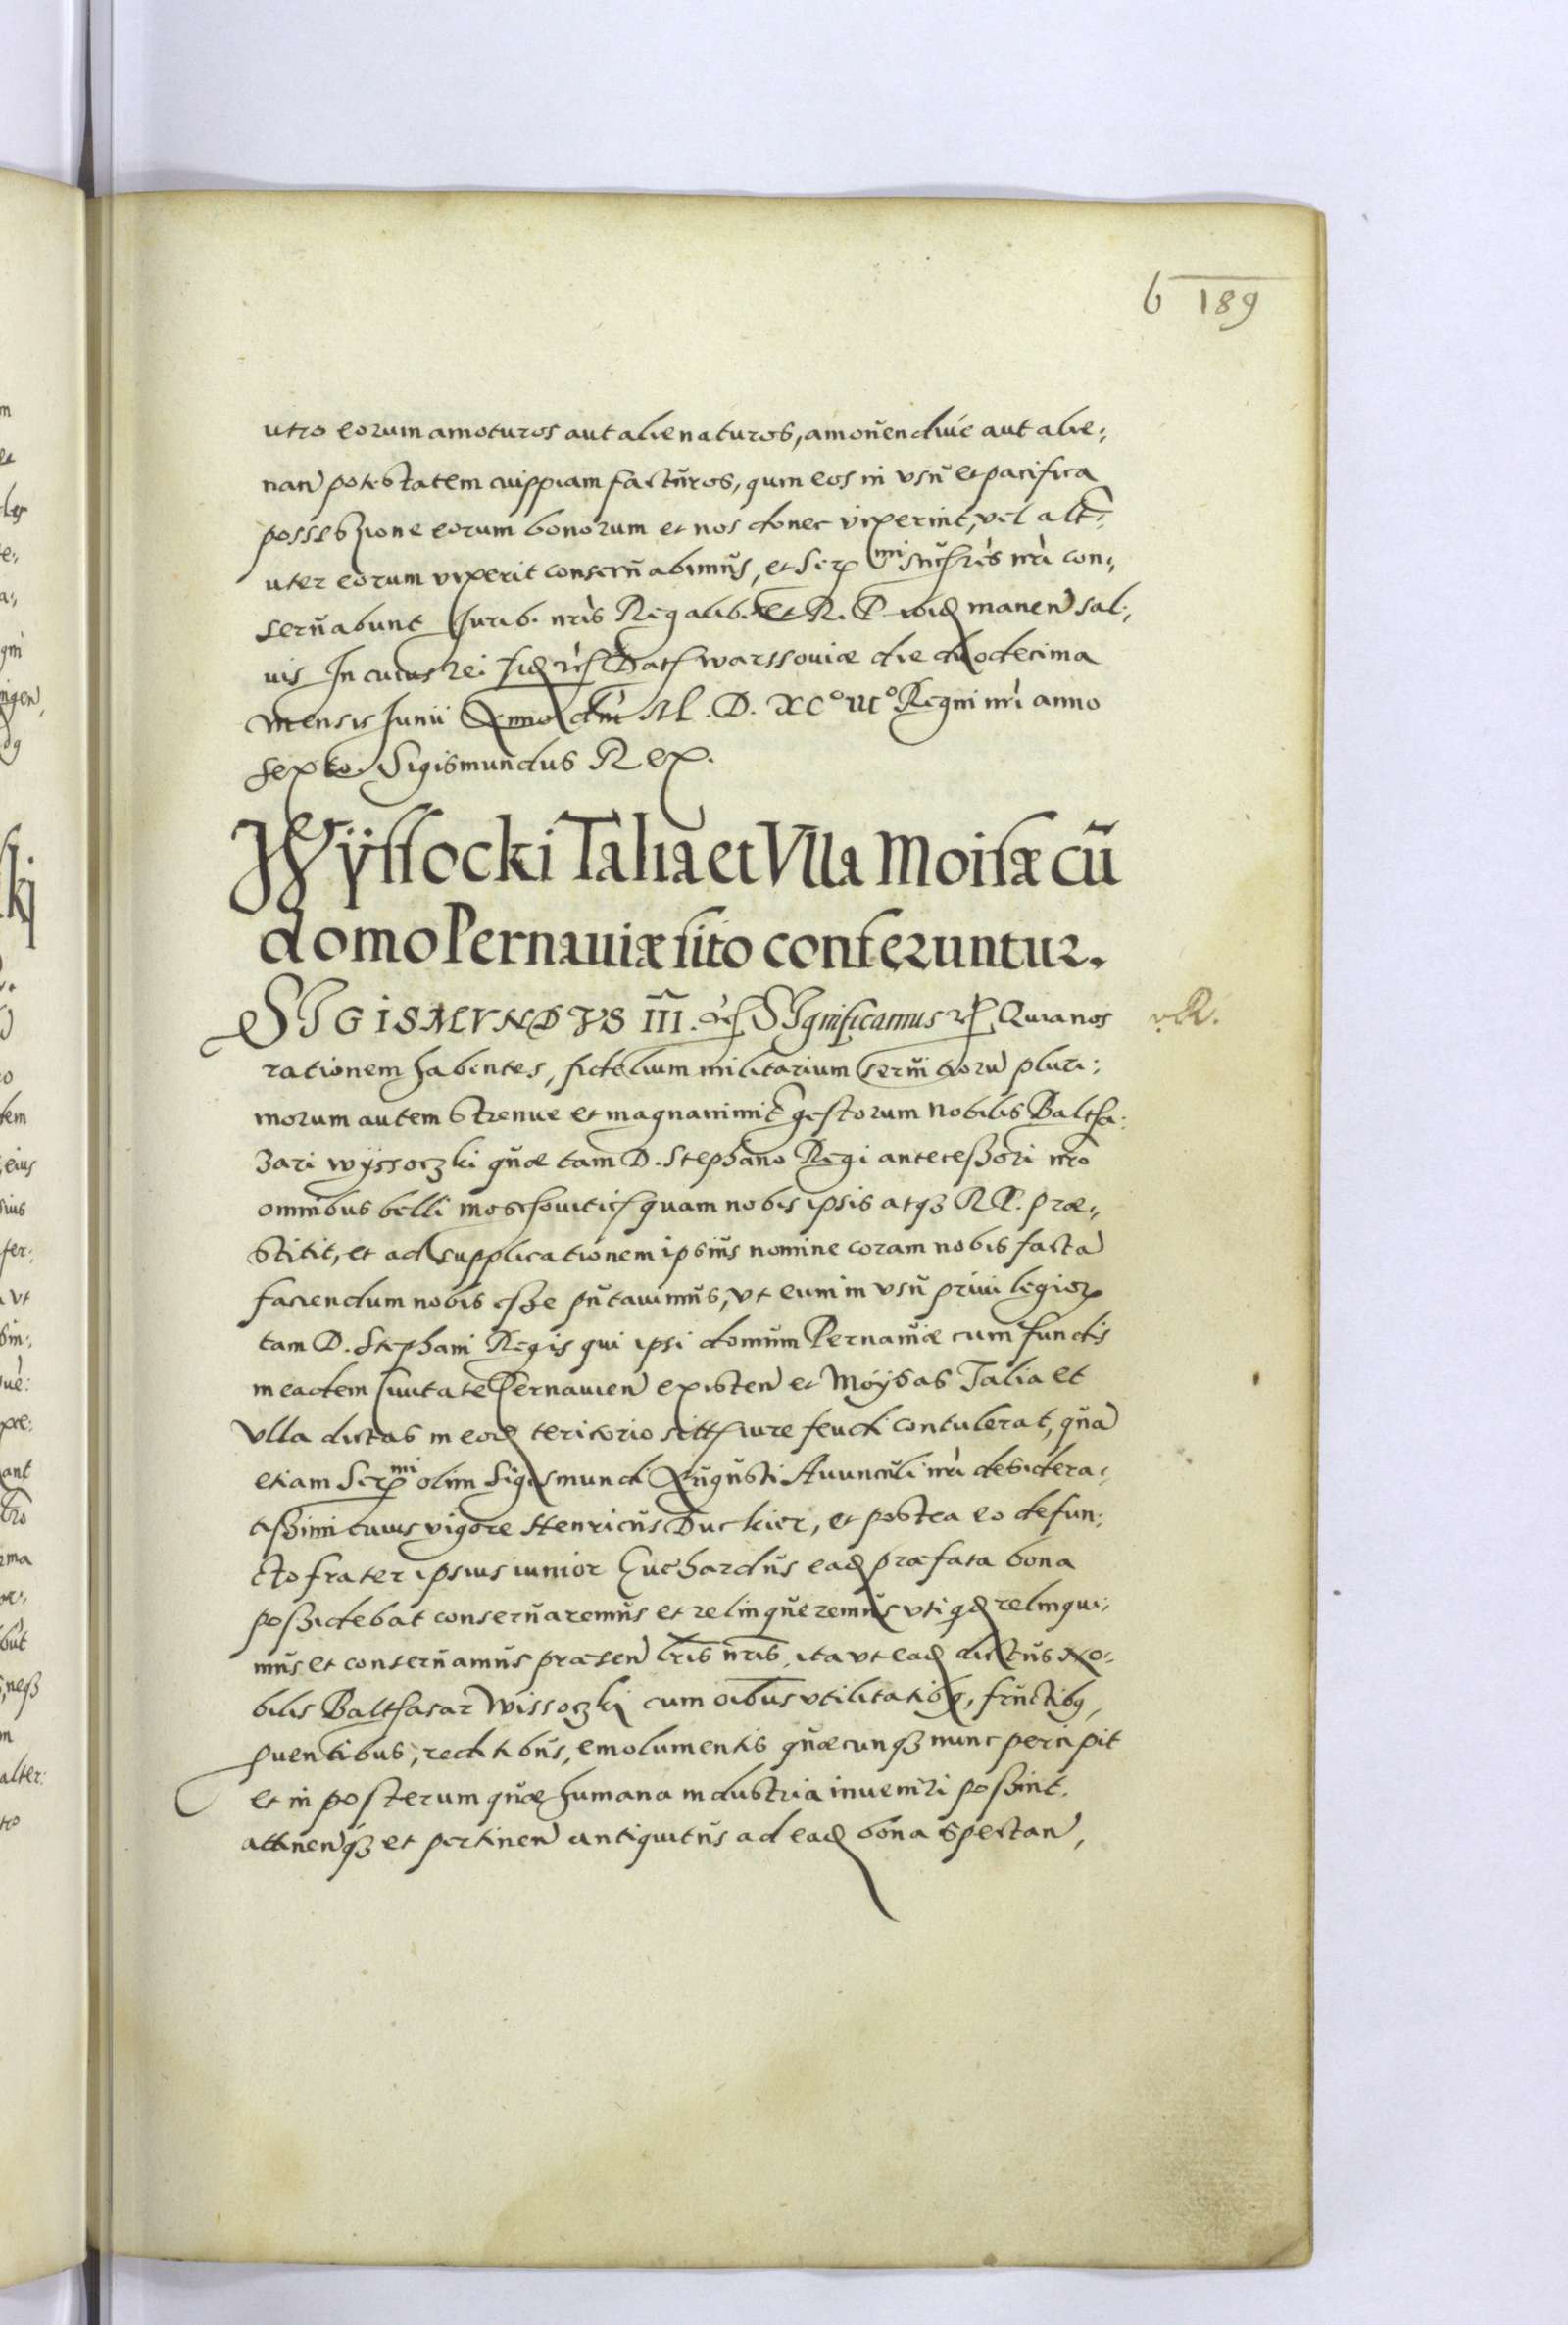 6 189
utro eorum amoturos aut alienaturos, amouendiue aut alie:
nan potestatem cuippiam facturos, quin eos in vsu et pacifica
possessione eorum bonorum et nos donec vixerint, vel alt:
uter eorum vixerit conseruabimus, et Ser mi succres nri con:
seruabunt Jurib. nris Regalib. et R. P. ibid manen sal:
uis In cuius rei fid etc Dat Warssouiæ die duodecima
mensis Junii Anno dni M. D. XC° III° Regni nri anno
sexto. Sigismundus Rex.
Wÿssocki Talia et Vlla Moisæ cū
domo Pernauiæ sito conferuntur.
SIGISMVNDVS III. etc Significamus etc Quia nos
rationem habentes, fidelium militarium seruitioru pluri:
morum autem strenue et magnanimit gestorum Nobilis Baltha:
zari Wÿssoczki quæ tam D. Stephano Regi antecessori nro
omnibus belli moschouitic quam nobis ipsis atq3 R P. præ:
stitit, et ad supplicationem ipsius nomine coram nobis facta
faciendum nobis esse putauimus, vt eum in vsu priuilegior
tam D. Stephani Regis qui ipsi domum Pernauiæ cum fundis
in eadem ciuitate Pernauien existen et Moÿsas Talia et
Vlla dictas in eod teritorio sitt iure feudi contulerat, qua
etiam Ser mi olim Sigismundi Augusti Auunculi nri desidera:
tissimi cuius vigore Henricus Ducker, et postea eo defun:
cto frater ipsius iunior Euchardus ead præfata bona
possidebat conseruaremus et relinqueremus vti qd relinqui:
mus et conseruamus præsen lris nris, ita vt ead dictus No:
bilis Balthasar Wissoczki cum oibus vtilitatibq, fructibq,
puentibus, reditibus, emolumentis quæcunq3 nunc percipit
et in posterum quæ humana industria inueniri possint.
attinenq3 et pertinen antiquitus ad ead bona spectan,